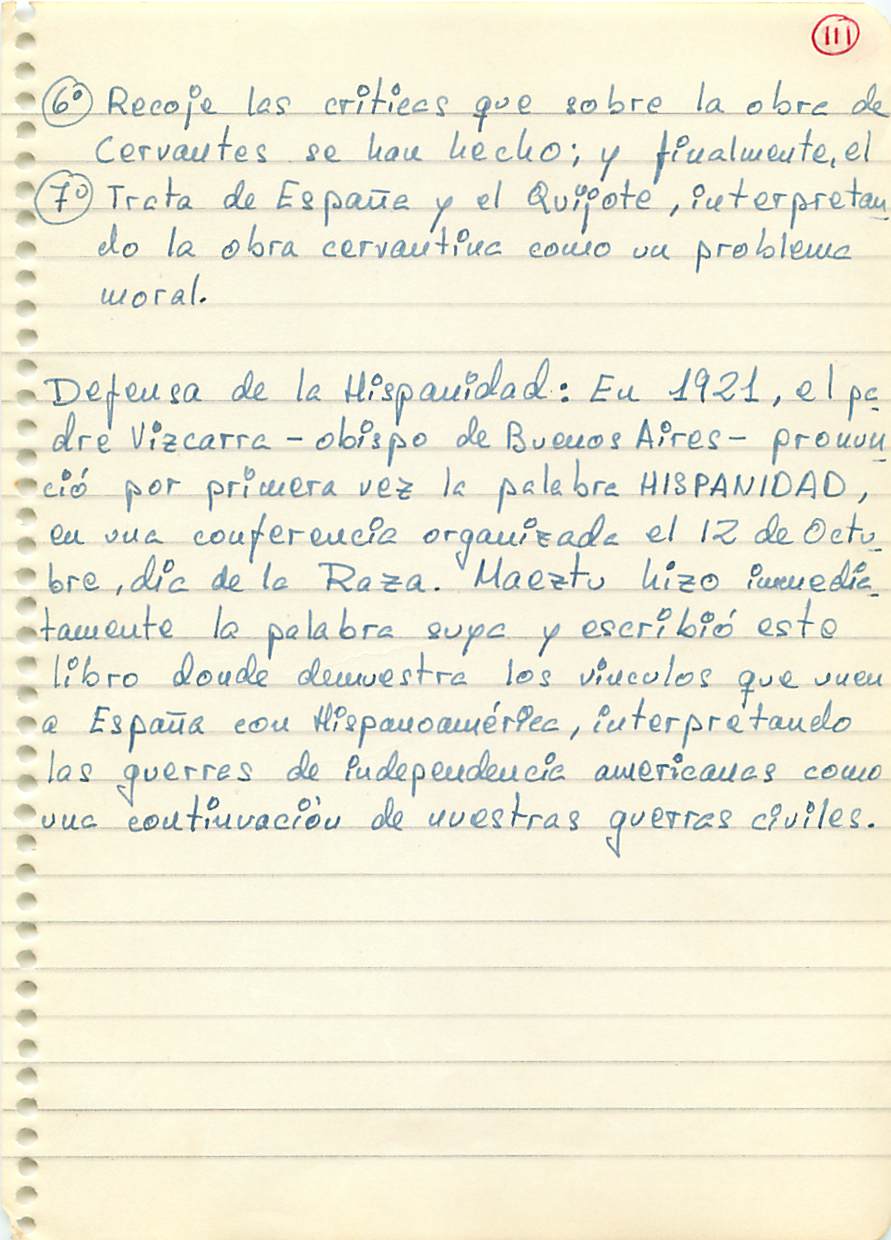 111
6º Recoje las criticas que sobre la obra de
Cervantes se han hecho; y finalmente, el
7º Trata de España y el Quijote, interpretan
do la obra cervantina como un problema
moral.
Defensa de la Hispanidad: En 1921, el pa
dre Vizcarra - obispo de Buenos Aires - pronun
ció por primera vez la palabra HISPANIDAD,
en una conferencia organizada el 12 de Octu
bre, dia de la Raza. Maeztu hizo inmedia
tamente la palabra suya y escribió este
libro donde demuestra los vinculos que unen
a España con Hispanoamérica, interpretando
las guerras de independencia americanas como
una continuación de nuestras guerras civiles.